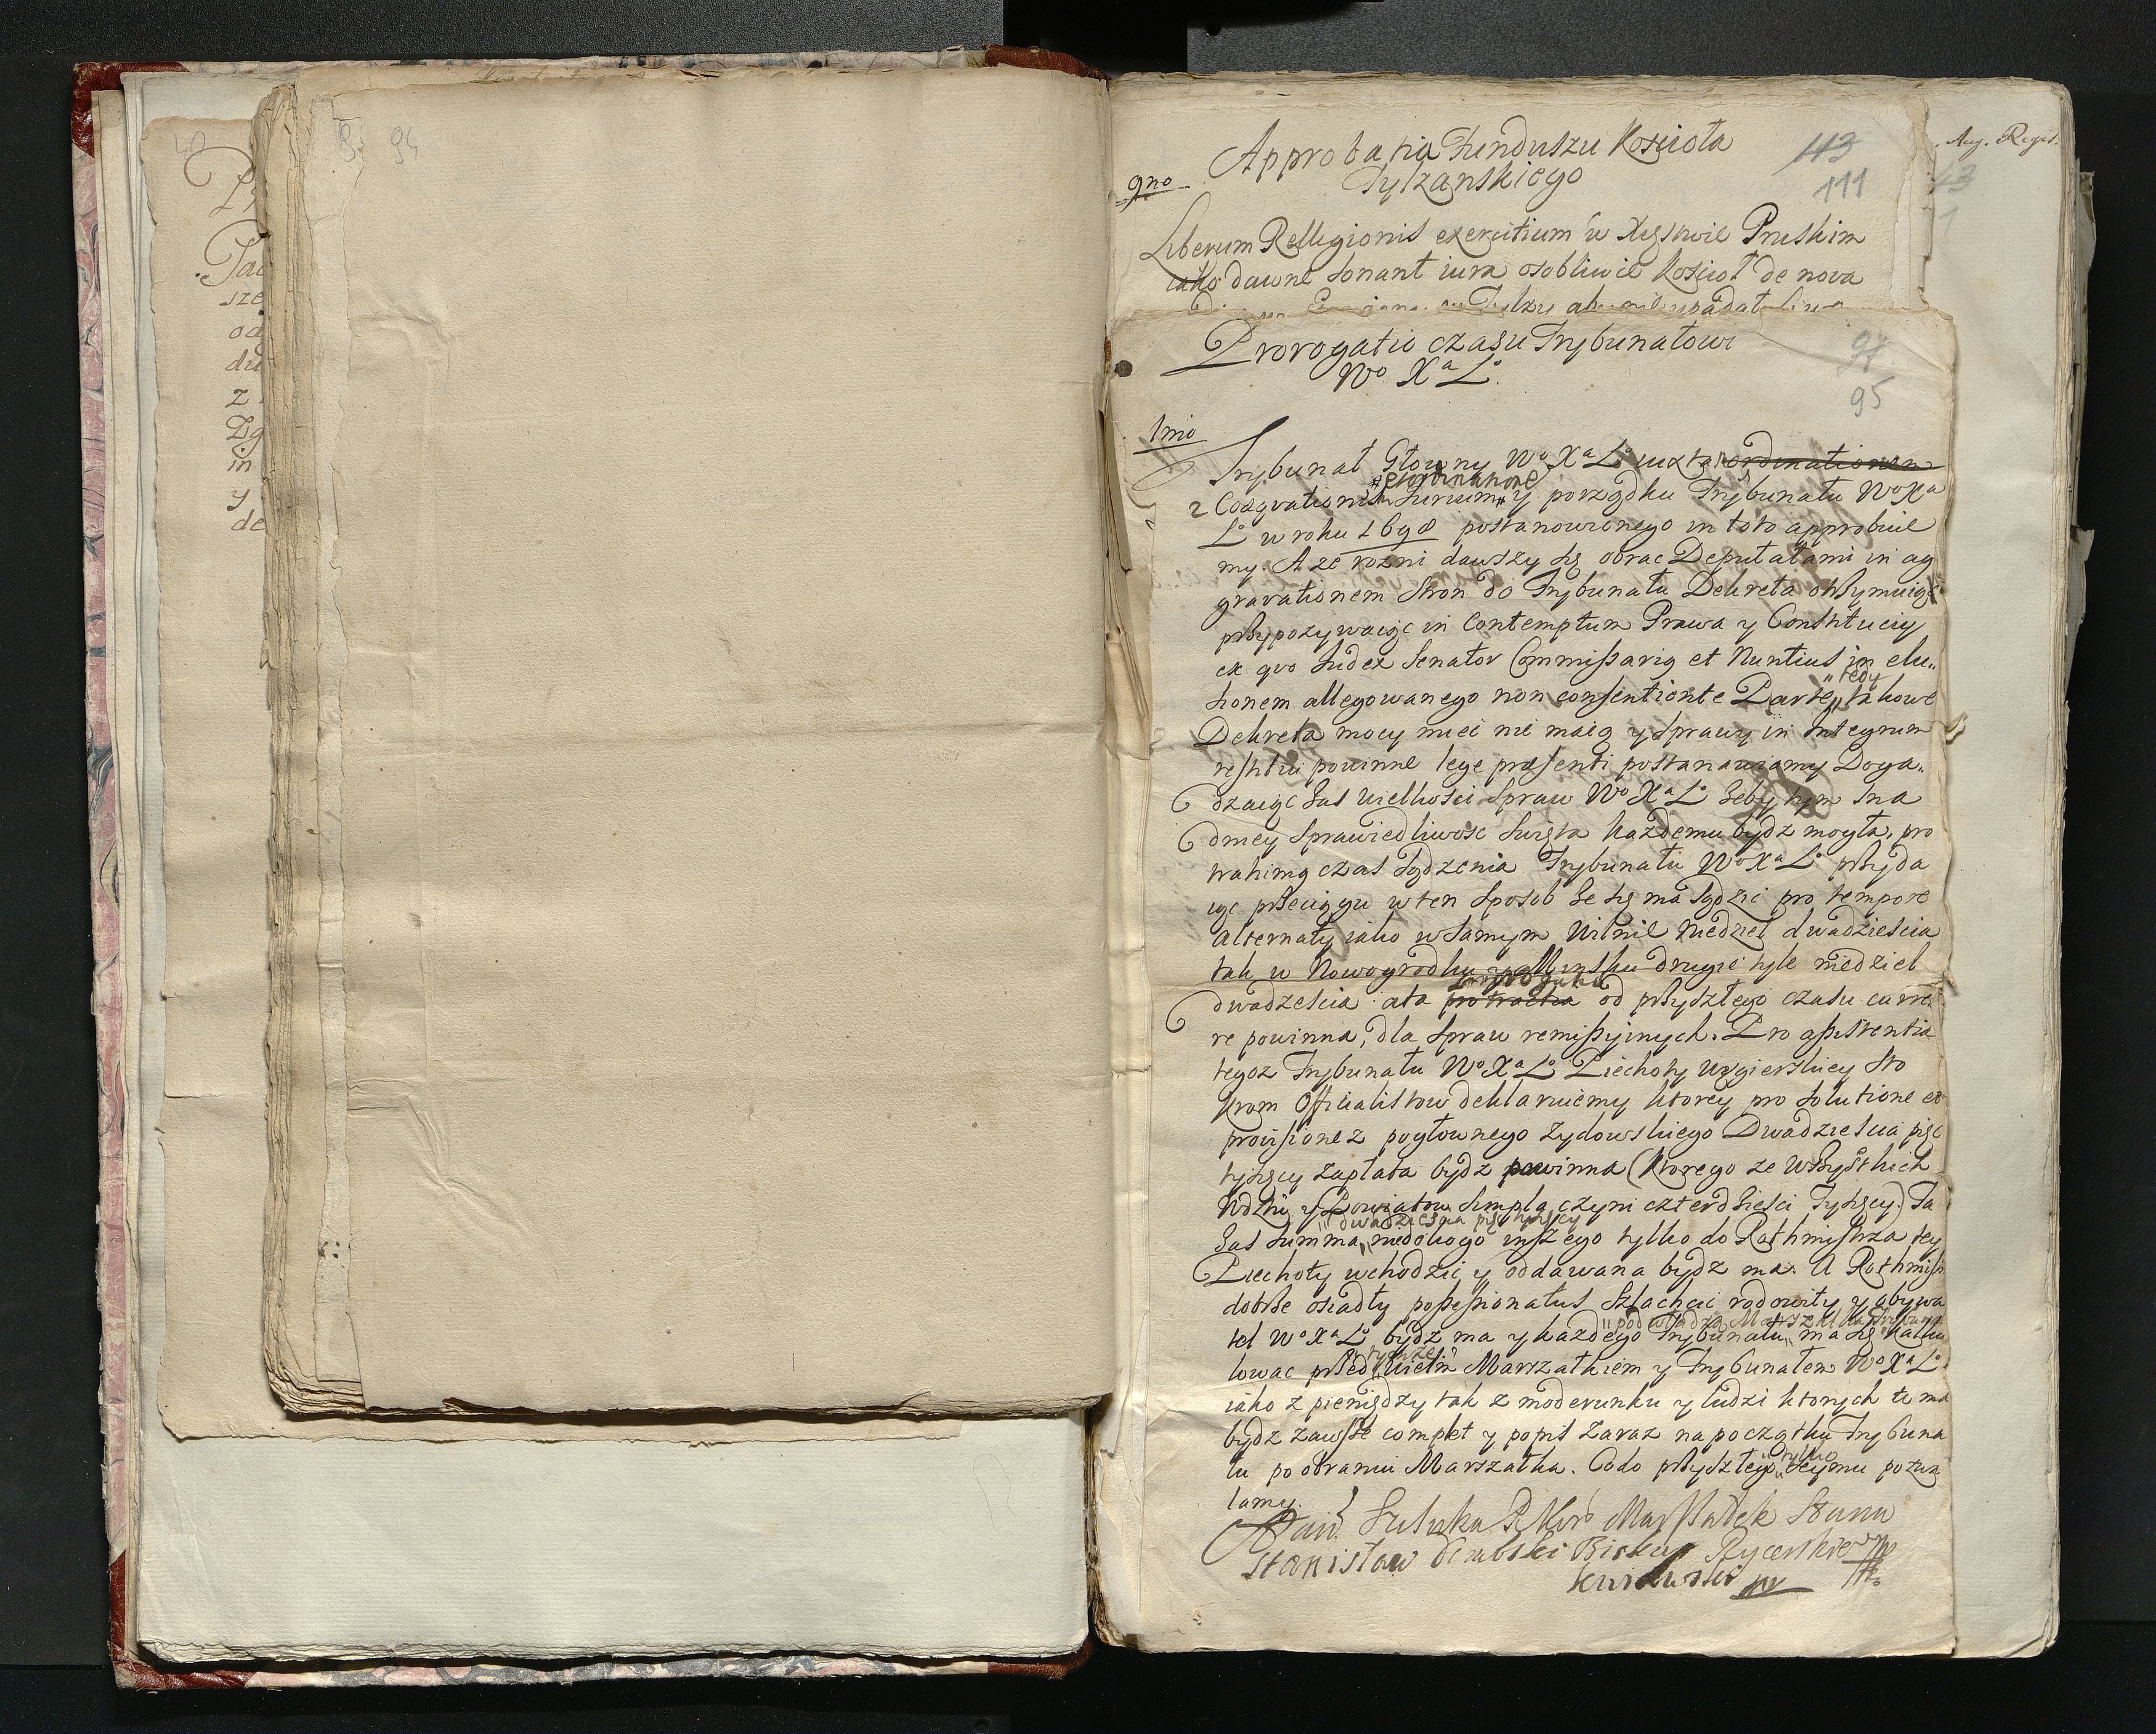 40
94
Tac
sze
od
du
z
Zg
in
y
de
Approbatia Funduszu Kosciola
Tylzanskiego
113
111
9no
Aug. Regis.
Liberum Religionis exercitium w Xięstwie Pruskim
iako dawne sonant iura osobliwie Kosciol de nova
Prorogatio czasu Trybunałowi
Wo Xa Lo.
97
95
1mo
Trybunał Głowny Wo Xa Lo iuxta ordinationem
et ordinationem
Coæqvationis Jurium y porządku Trybunału Wo Xa
Lo w roku 1698 postanowionego in toto approbuie
my. A ze rozni dawszy się obrac Deputatami in ag
gravationem stron do Trybunału Dekreta otrzymuią
przypozywaiąc in Contemptum Prawa y Constituciy
ex qvo Judex Senator Commissarig et Nuntius in elu
tedy
sionem allegowanego non consentiente Parte, takowe
Dekreta mocy miec nie maią y sprawy in Integrum
restitui powinne lege præsenti postanawiamy Doga
dzaiąc zas wielkosci Spraw Wo Xa Lo zeby tym sna
dniey Sprawiedliwosc swięta kazdemu bydz mogła, pro
trahimg czas sądzenia Trybunału Wo Xa Lo przyda
iąc przeciągu w ten sposob ze się ma sądzic pro tempore
alternaty iako w samym Wilnie Niedziel dwadziescia
tak w Nowogrodku y Minsku drugie tyle niedziel
dwadziescia ata protractia od przyszłego czasu curre
re powinna, dla spraw remissyinych. Pro assistentia
tegoz Trybunału Wo Xa Lo Piechoty Węgierskiey sto
krom Officialistow deklaruiemy ktorey pro solutione ex
provisione z pogłownego Zydowskiego Dwadziescia pięc
tysięcy zapłata bydz powinna (ktorego ze wszystkich
Wdztw y Powiatow simpla czyni czterdziesci Tysięcy) Ta
dwadziescia pięc tysięcy
zas summa, niedokogo inszego tylko do Rothmistrza tey
Piechoty wchodzic y oddawana bydz ma. A Rothmistrz
dobrze osiadły possessionatus Szlachcic rodowity y obywa
pod władzą Marszałka Trybun
tel Wo Xa Lo bydz ma y kazdego Trybunału, ma się kalku
tymze
lowac przed wielm Marszałkiem y Trybunałem Wo Xa Lo
iako z pieniędzy tak z moderunku y ludzi ktorych tu ma
bydz zawsze complet y popis zaraz na początku Trybuna
tylko
łu po obraniu Marszałka. Co do przyszłego Seymu pozwa
lamy.
Marszałek Stanu
Stanisław Dembski Biskup Rycerskiego
Kuiawski mp